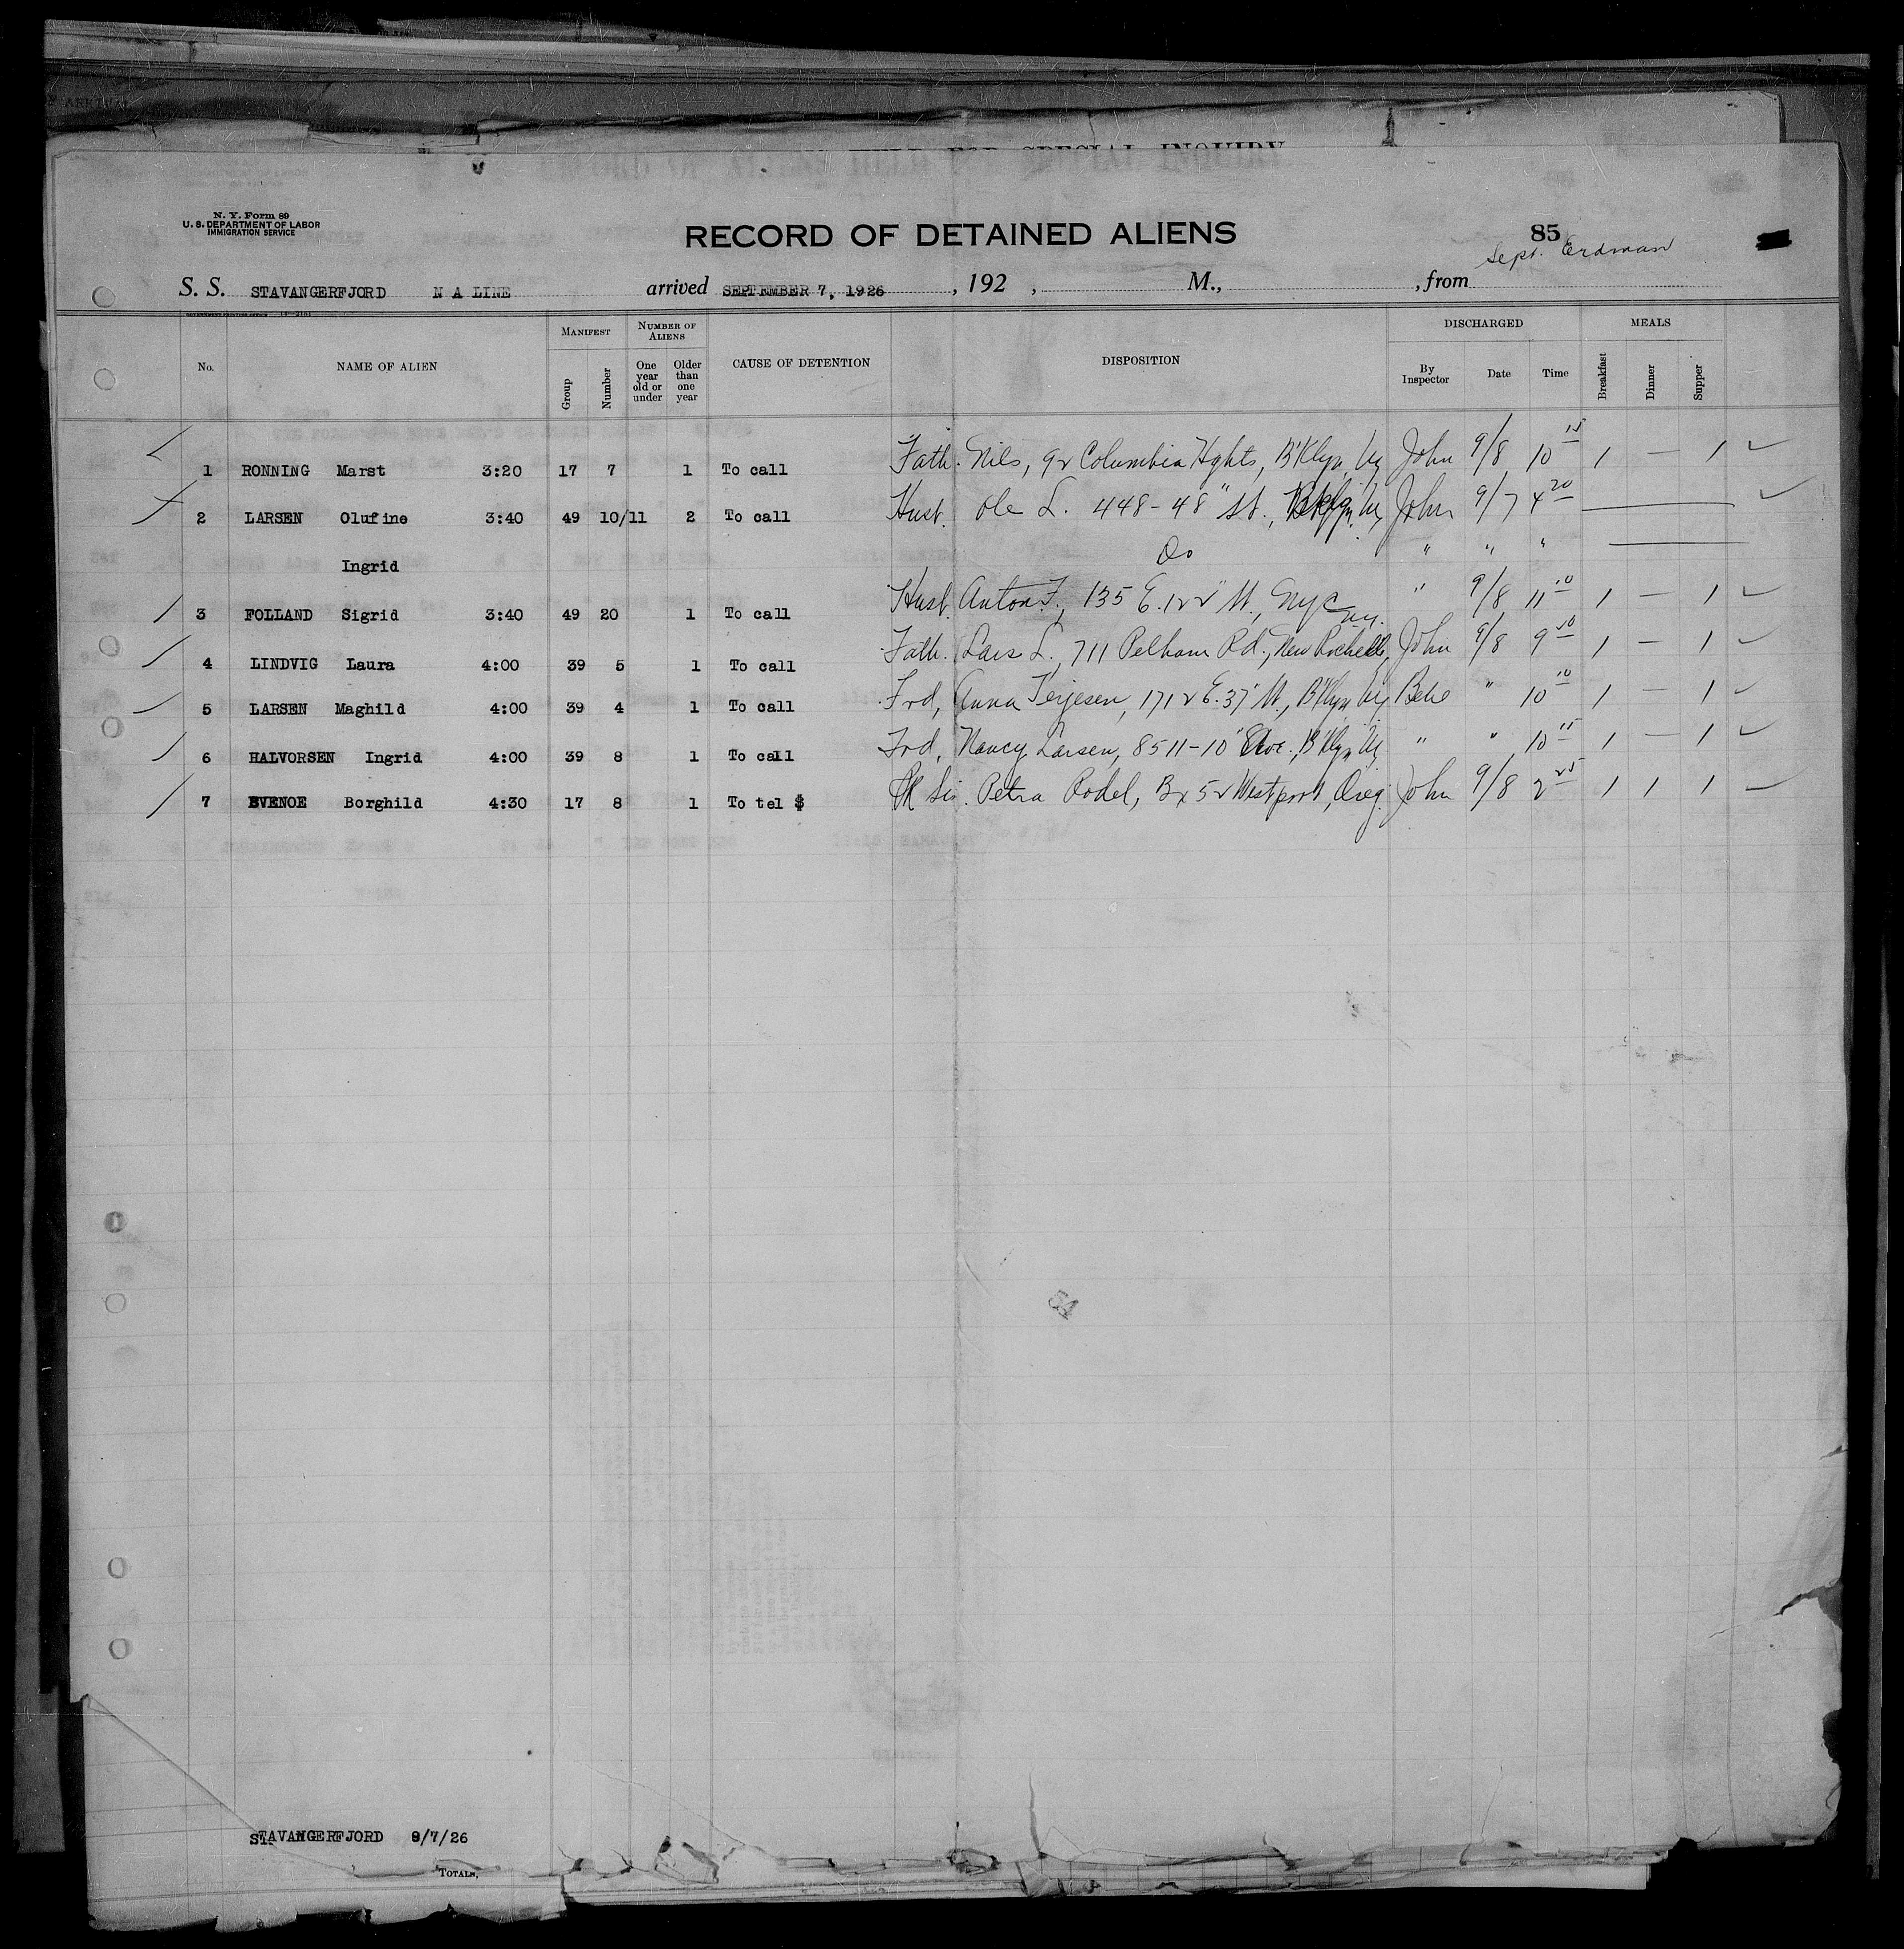 N. Y. Form 89
U. S. DEPARTMENT OF LABOR
IMMIGRATION SERVICE
RECORD OF DETAINED ALIENS
85
Sept. Erdman
S. S. STAVANGERFJORD N A LINE arrived SEPTEMBER 7, 1926, 192 , M., , from
No. NAME OF ALIEN MANIFEST Group Number NUMBER OF ALIENS One year old or under Older than one year CAUSE OF DETENTION DISPOSITION DISCHARGED By Inspector Date Time MEALS Breakfast Dinner Supper
1 RONNING Marst 3:20 17 7 1 To call Fath. Nils, 92 Columbia Hghts, B'Klyn Ny John 9/8 10 15 1 — 1 ✓
2 LARSEN Olufine 3:40 49 10/11 2 To call Husb. Ole L. 448-48" St., Bklyn. Ny John 9/7 4 20 ✓
Ingrid Do " " "
3 FOLLAND Sigrid 3:40 49 20 1 To call Husb. Anton F., 135 E. 122" St., Nyc " 9/8 11 10 1 — 1 ✓
4 LINDVIG Laura 4:00 39 5 1 To call Fath. Lars L. 711 Pelham Rd., New Rochelle, Ny. John 9/8 9 50 1 — 1 ✓
5 LARSEN Maghild 4:00 39 4 1 To call Frd, Anna Terjesen, 1712 E. 37" St., B'Klyn Ny " 10 10 1 — 1 ✓
6 HALVORSEN Ingrid 4:00 39 8 1 To call Frd, Nancy Larsen, 8511-10" Ave., B'Klyn Ny " " 10 15 1 — 1 ✓
7 EVENOE Borghild 4:30 17 8 1 To tel $ Sis. Petra Rodel, Bx 52 Westport, Oreg. John 9/8 2 25 1 1 1
STAVANGERFJORD 9/7/26
TOTALS,